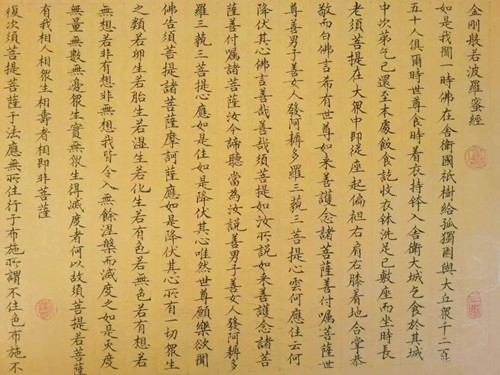 金剛般若波羅蜜經
如是我聞一時佛在舍衛國祇樹給孤獨園與大丘眾千二百
五十人俱爾時世尊食時着衣持鉢入舍衛大城乞食於其城
中次第乞已還至本處飯食訖收衣鉢洗足已敷座而坐時長
老須菩提在大眾中即從座起偏袒右肩右膝着地合掌恭
敬而白佛言希有世尊如来善護念諸菩薩善付嘱諸菩薩世
尊善男子善女人發阿耨多羅三藐三菩提心雲何應住云何
降伏其心佛言善哉善哉須菩提如汝所說如来善護念諸菩
薩善付嘱諸菩薩汝今諦聽當為汝說善男子善女人發阿耨多
羅三藐三菩提心應如是住如是降伏其心唯然世尊願樂欲聞
佛告須菩提諸菩薩摩訶薩應如是降伏其心所有一切眾生
之類若卵生若胎生若濕生若化生若有色若無色若有想若
無想若非有想非無想我皆令入無餘涅槃而滅度之如是滅度
無量無數無邊眾生實無眾生得滅度者何以故須菩提若菩薩
有我相人相眾生相壽者相即非菩薩
復次須菩提菩薩于法應無所住行于布施所謂不住色布施不